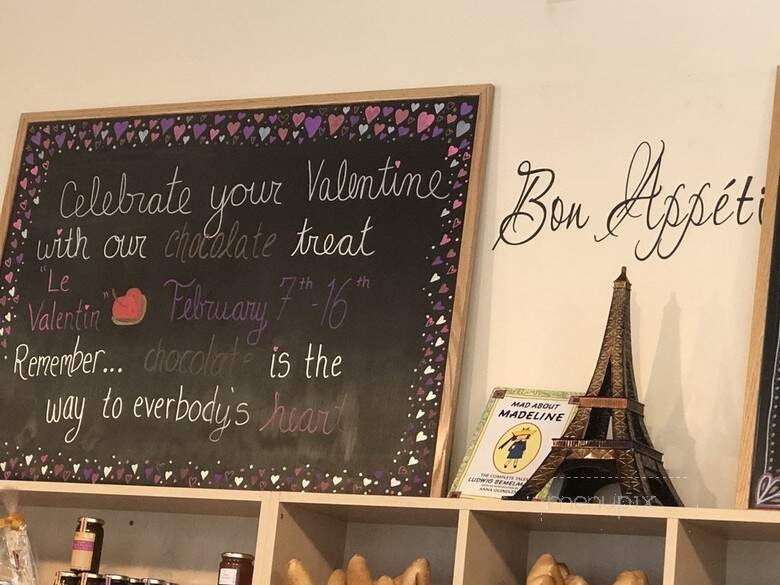 Celebrate your Valentine
with our chocolate treat
"Le Valentin" February 7th-16th
Remember... chocolate is the
way to everbody's heart
Bon Appéti
MAD ABOUT
MADELINE
THE COMPLETE TALES
LUDWIG BEMELM
ANNA QUINDLEN
menupix